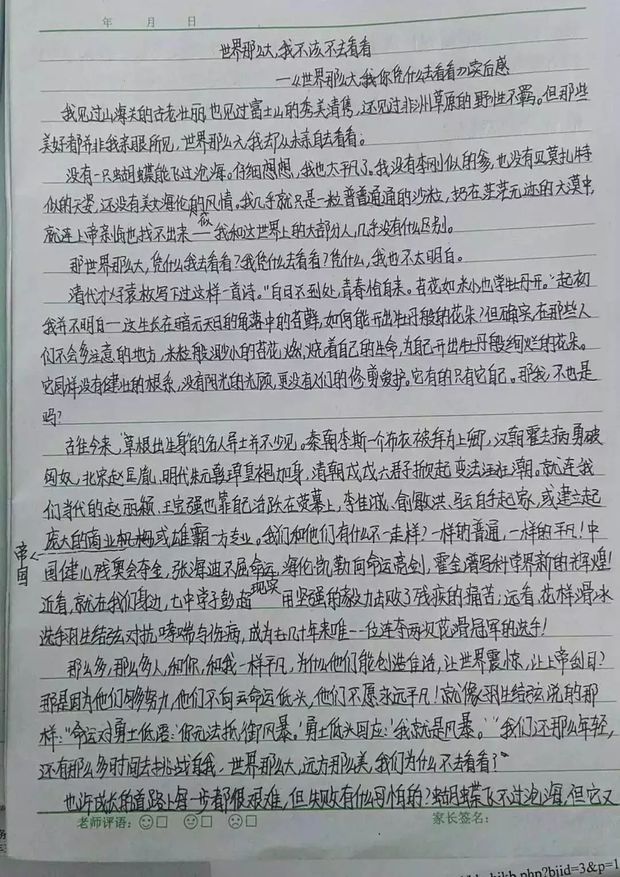 年 月 日
世界那么大,我不该不去看看
——《世界那么大,我你凭什么去看看》读后感
我见过山海关的古老壮丽,也见过富士山的秀美清隽,还见过非州草原的野性不羁。但那些
美好都并非我亲眼所见,世界那么大,我却从未亲自去看看。
没有一只蝴蝶能飞过沧海。仔细想想,我也太平凡了。我没有李刚似的爹,也没有贝莫扎特
似的天姿,还没有美女海伦似的风情。我几乎就只是一粒普普通通的沙粒,扔在茫茫无迹的大漠中,
就连上帝亲临也找不出来——我和这世界上的大部分人,几乎没有什么区别。
那世界那么大,凭什么我去看看?我凭什么去看看?凭什么,我也不太明白。
清代才子袁枚写下过这样一首诗。"白日不到处,青春恰自来。苔花如米小,也学牡丹开。"起初
我并不明白——这生长在暗无天日的角落中的苔藓,如何能开出牡丹般的花朵?但确实,在那些人
们不会多注意的地方,米粒般渺小的苔花燃烧着自己的生命,为自己开出牡丹般绚烂的花朵。
它同样没有健壮的根系,没有阳光的光顾,更没有人们的修剪爱护。它有的只有它自己。那我,不也是
吗?
古往今来,"草根出生"的名人异士并不少见。秦朝李斯一个布衣被拜为上卿,汉朝霍去病勇破
匈奴,北宋赵匡胤,明代朱元璋皇袍加身,清朝戊戌六君子掀起变法汪在潮。就连我
们当代的赵丽颖、王宝强也靠自己活跃在荧幕上,李佳诚、俞敏洪、马云白手起家,或建立起
庞大的商业帝国或雄霸一方专业。我们和他们有什么不一走样?一样的普通,一样的平凡!中
国健儿残奥会夺金,张海迪不屈命运,海伦凯勒向命运亮剑,霍金谱写科学界新的辉煌!
近看,就在我们身边,七中学子彭超现实用坚强的毅力击败了残疾的痛苦;远看,花样滑冰
选手羽生结弦对抗哮喘与伤病,成为七几十年来唯一一位连夺两次花滑冠军的选手!
那么多,那么多人,和你,和我一样平凡,为什么他们能创造佳话,让世界震惊,让上帝刮目?
那是因为他们够努力,他们不向云命运低头,他们不愿永远平凡!就像羽生结弦说的那
样:"命运对勇士低语:'你无法抵御风暴。'勇士低头回应:'我就是风暴。'"我们还那么年轻,
还有那么多时间去挑战自我。世界那么大,远方那么美,我们为什么不去看看?
也许成长的道路上每一步都很艰难,但失败有什么可怕的?蝴蝶飞不过沧海,但它又
老师评语: 家长签名:
bjkb.php?bjid=3&p=1